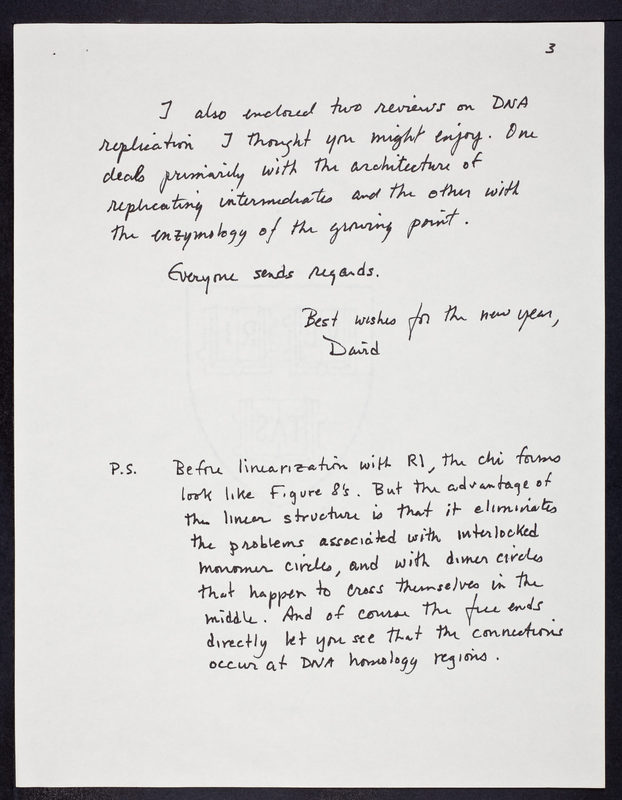 3
I also enclosed two reviews on DNA
replication I thought you might enjoy. One
deals primarily with the architecture of
replicating intermediates and the other with
the enzymology of the growing point.
Everyone sends regards.
Best wishes for the new year,
David
P.S. Before linearization with R1, the chi forms
look like Figure 8's. But the advantage of
the linear structure is that it eliminates
the problems associated with interlocked
monomer circles, and with dimer circles
that happen to cross themselves in the
middle. And of course the free ends
directly let you see that the connections
occur at DNA homology regions.